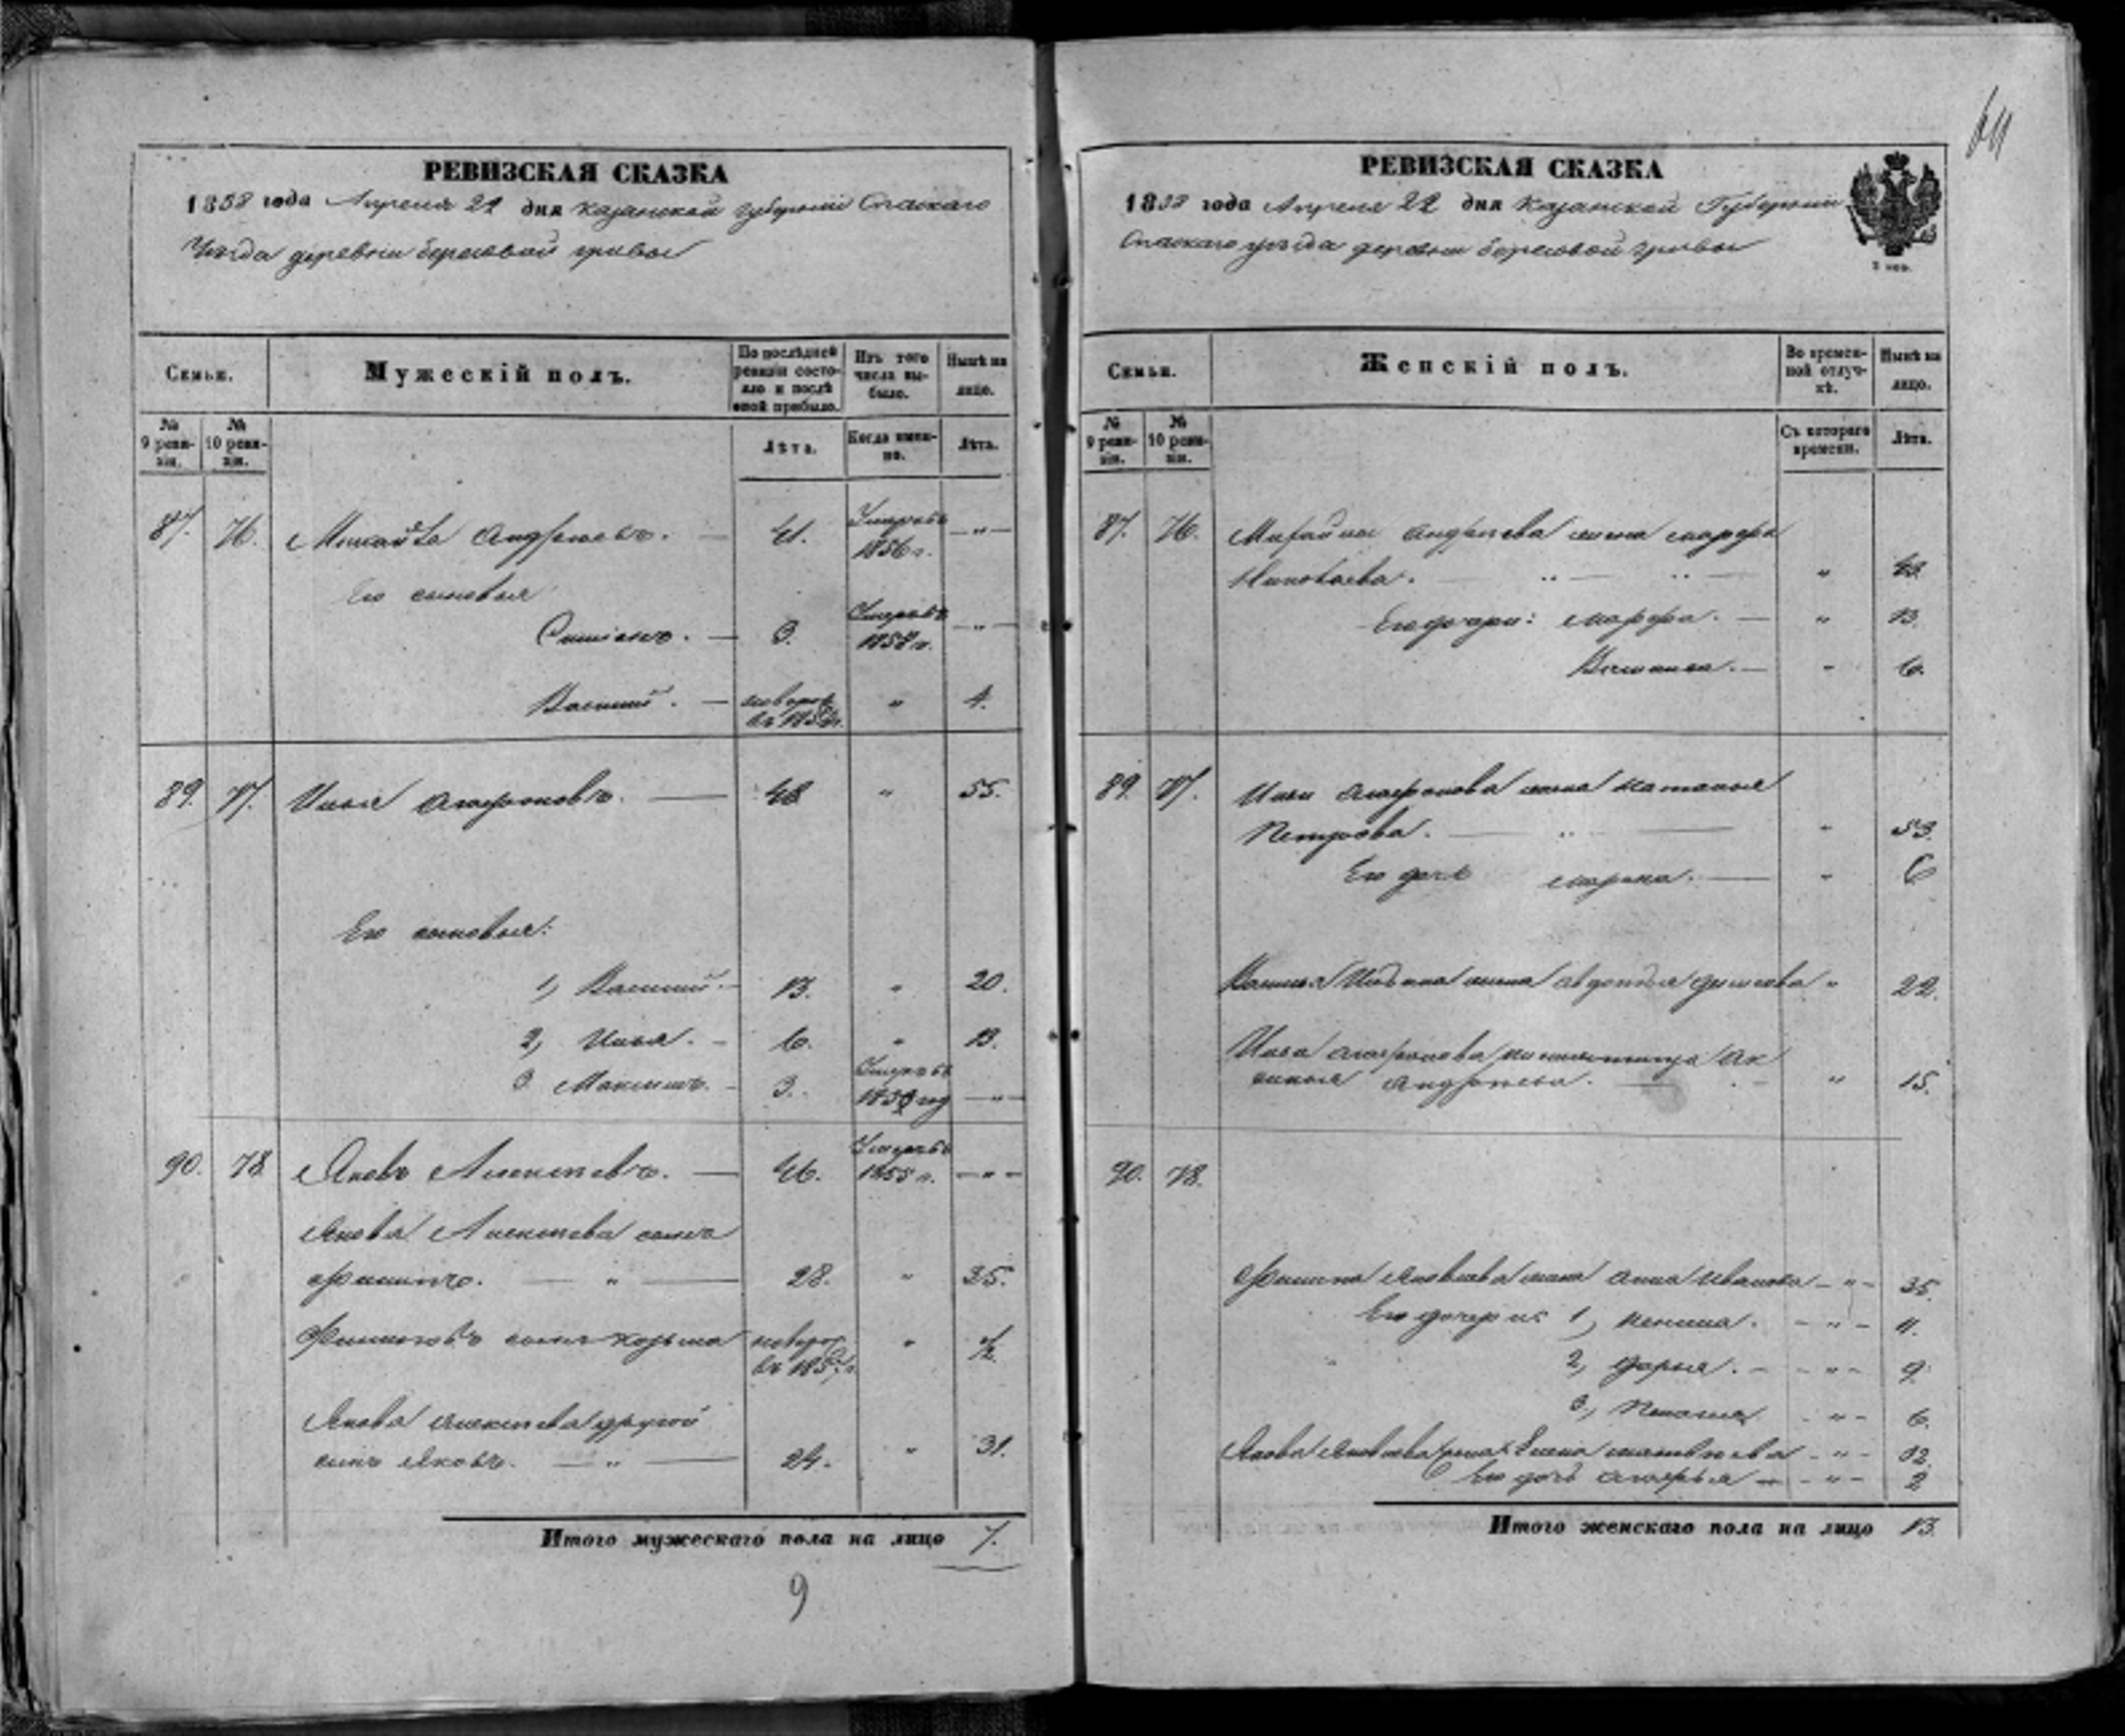 РЕВИЗСКАЯ СКАЗКА
1858 года Апреля 21 дня Казанской губернии Спаскаго
Уезда деревни Березовой гривы
Семьи.
Мужескій полъ.
По послѣдней ревизіи состояло и послѣ оной прибыло.
Изъ того числа выбыло.
Нынѣ на лицо.
№ 9 ревизіи.
№ 10 ревизіи.
Лѣта.
Когда именно.
Лѣта.
87. 76. Михайла Андреевъ. — 41. Умеръ въ 1856 г. — " —
Его сыновья
— 3. Умеръ въ — " —
Василий. — новорож. " 4.
89. 77. Илья — 48 " 55.
Его сыновья:
1, Василий. — 13. " 20.
2, Илья. — 6. " 13.
3 Максимъ. — 3. Умеръ въ — " —
90. 78 Яковъ Алексеевъ. — 46. Умеръ въ 1855 г. — " —
Якова Алексеева сынъ
Филипъ. — " — 28. " 35.
Филиповъ сынъ Козьма новорож. въ 1857 г. " 1/2
Якова Алексеева другой
сынъ Яковъ. — " — 24. " 31.
Итого мужескаго пола на лицо 7.
9
64
РЕВИЗСКАЯ СКАЗКА
1858 года Апреля 22 дня Казанской Губернии
Спаскаго уезда деревни Березовой гривы
Семьи.
Женскій полъ.
Во временной отлучкѣ.
Нынѣ на лицо.
№ 9 ревизіи.
№ 10 ревизіи.
Съ котораго времени.
Лѣта.
87. 76. Михайлы Андреева жена Марфа
"
Его дочери: Марфа. — " 13.
— " 6.
89. 77. Ильи жена Наталья
Петрова. — " — " 53.
Его дочь Марина. — " 6
Василья Ильина жена Авдотья " 22.
Ильи Ак
синья Андреева. — " 15.
90. 78.
Филипа Яковлева жена Анна Иванова — " — 35.
Его дочери: 1, — " — 11.
2, Дарья. — — " — 9.
3, Пелагея — " — 6.
Якова Яковлева жена Елена Матвеева — " — 32.
Его дочь — " — 2
Итого женскаго пола на лицо 13.